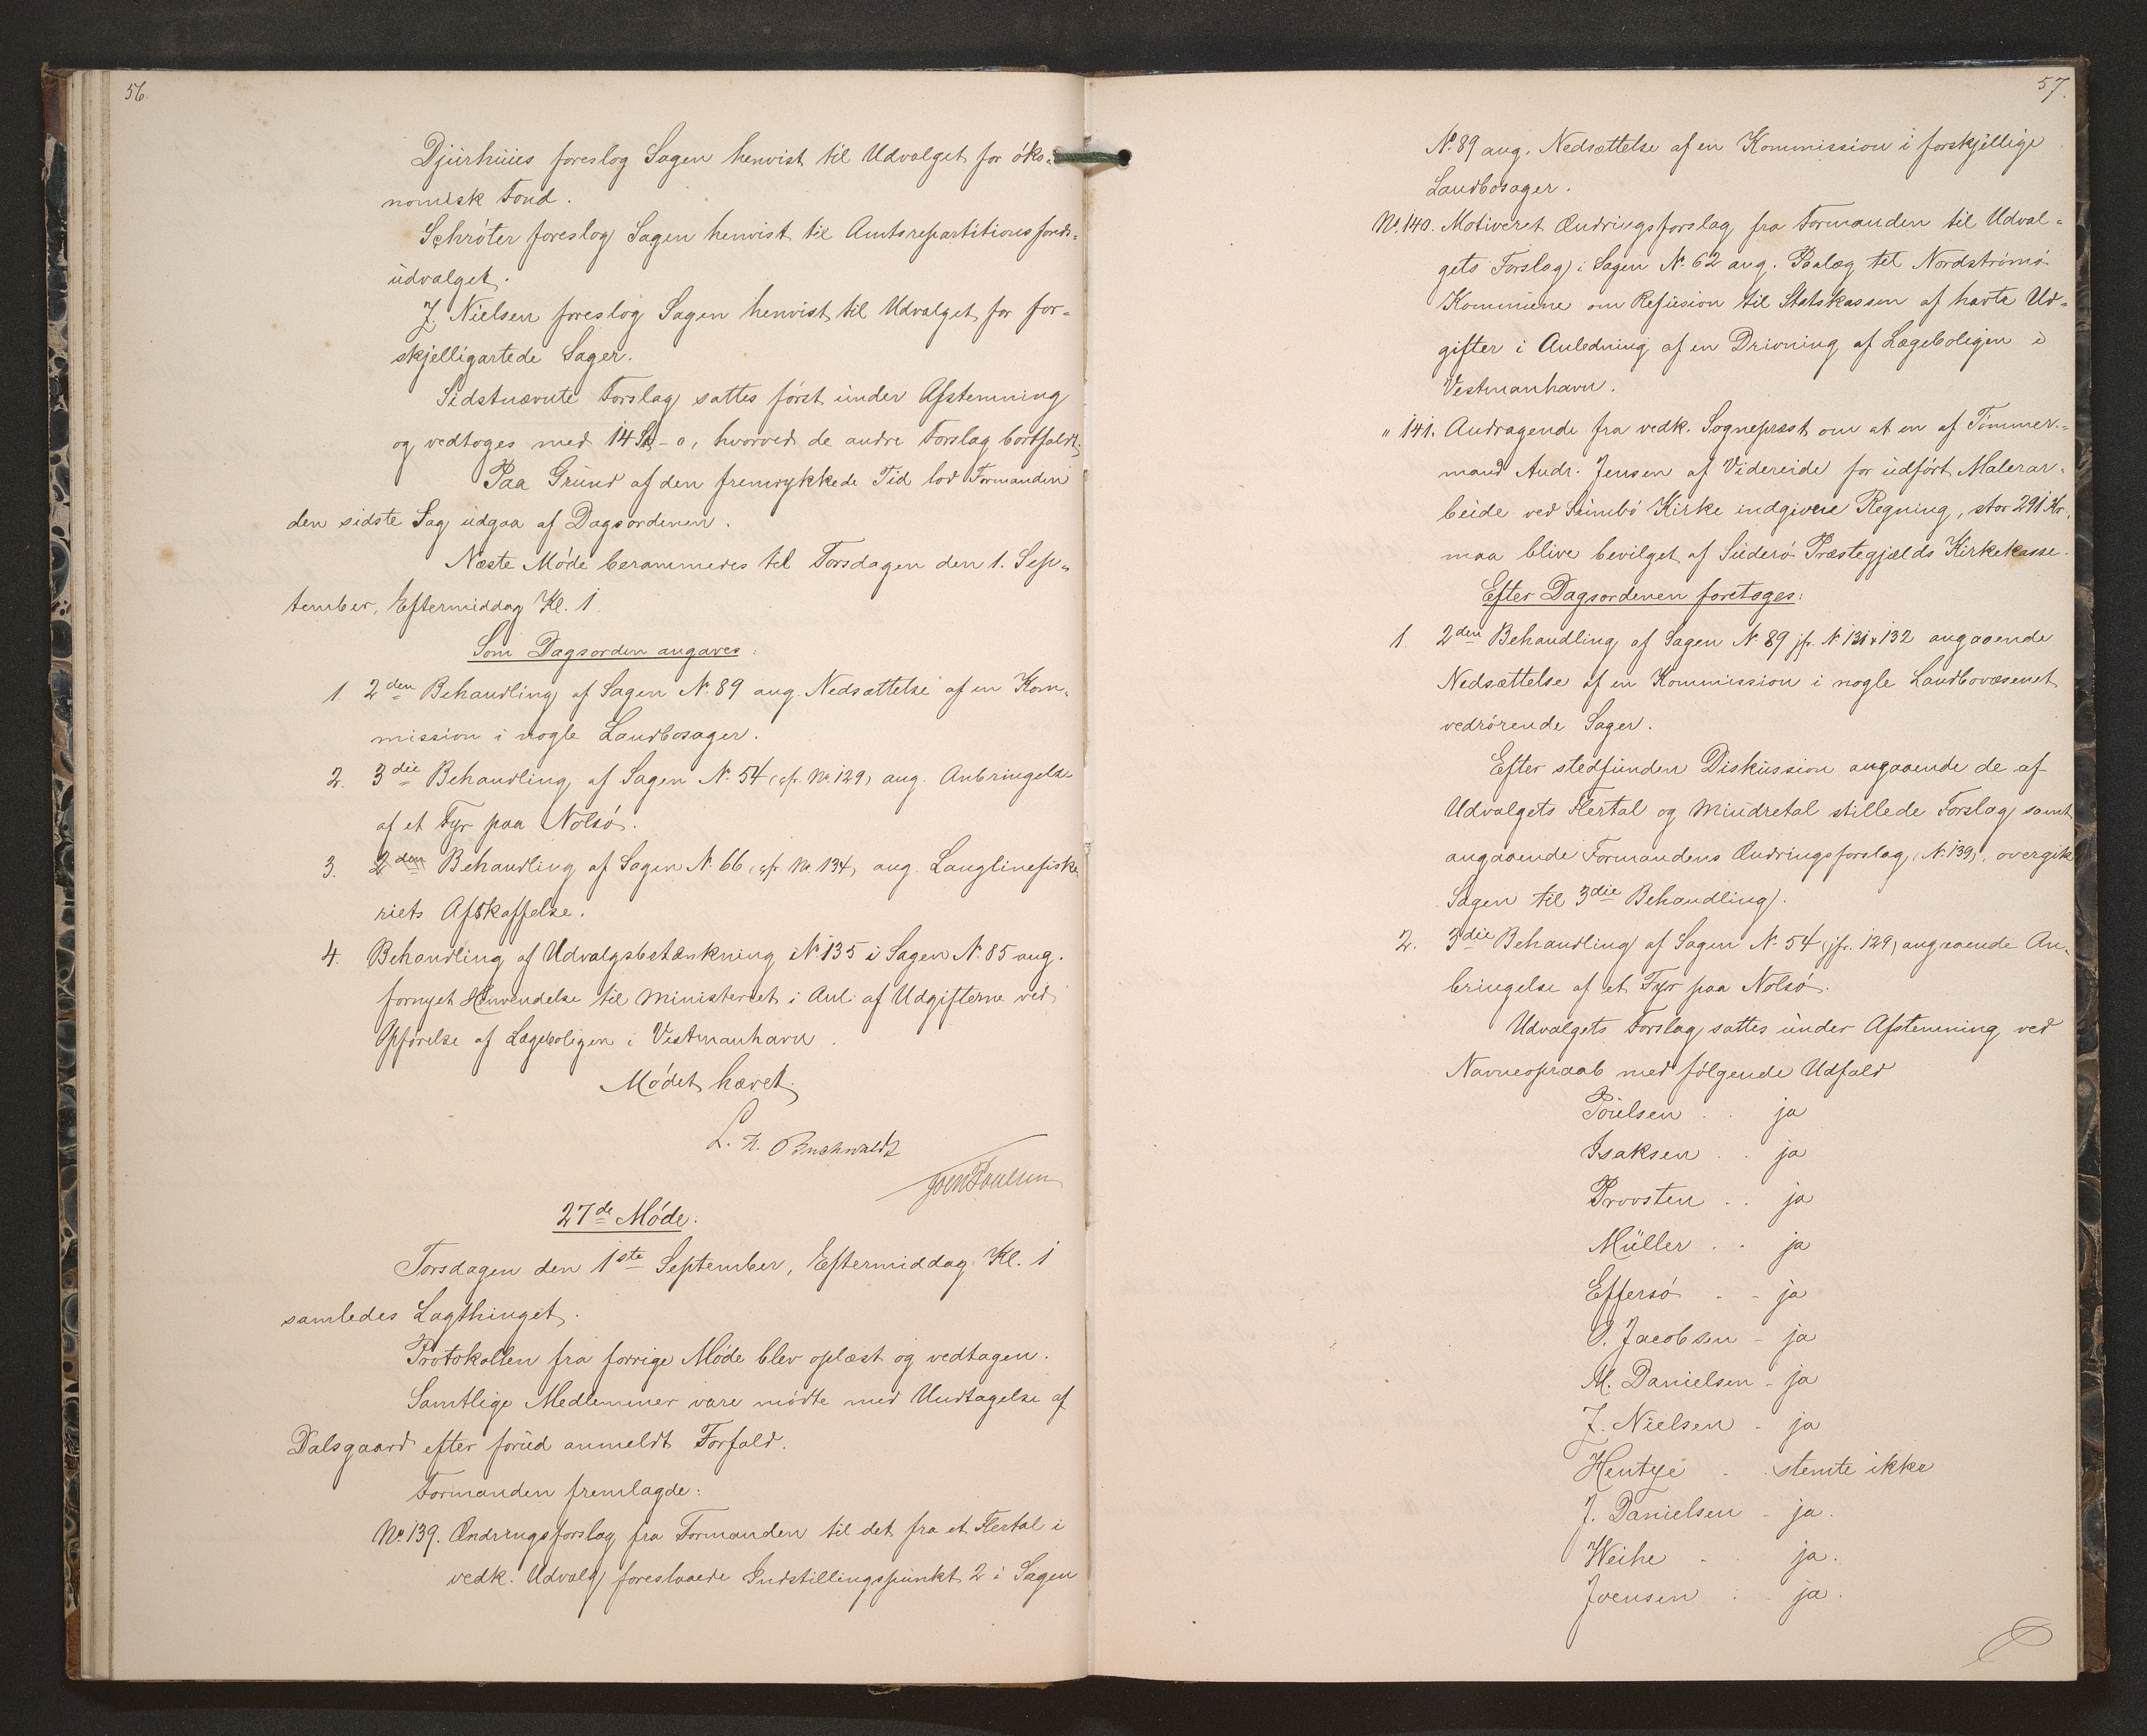 56.
Djurhuus foreslog Sagen henvist til Udvalget for öko-
nomisk Fond.
Schröter foreslog Sagen henvist til Amtsrepartitionsfonds-
udvalget.
J. Nielsen foreslog Sagen henvist til Udvalget for for-
skjelligartede Sager.
Sidstnævnte Forslag sattes först under Afstemning
og vedtoges med 14 St - 0, hvorved de andre Forslag bortfaldt.
Paa Grund af den fremrykkede Tid lod Formanden
den sidste Sag udgaa af Dagsordenen.
Næste Möde berammedes til Torsdagen den 1. Sep-
tember, Eftermiddag Kl. 1
Som Dagsorden angaves:
1. 2den Behandling af Sagen No. 89 ang. Nedsættelse af en Kom-
mission i nogle Landbosager.
2. 3die Behandling af Sagen No. 54 (cfr. No. 129) ang. Anbringelse
af et Fyr paa Nolsö.
3. 2den Behandling af Sagen No. 66 (cfr. No. 134) ang. Langlinefiske-
riets Afskaffelse.
4. Behandling af Udvalgsbetænkning No 135 i Sagen No. 85 ang.
fornyet Henvendelse til Ministeriet i Anl. af Udgifterne ved
Opförelse af Lægeboligen i Vestmanhavn.
Mödet hævet.
L. A. Buchwaldt
Joen Poulsen
27de Möde.
Torsdagen den 1ste September, Eftermiddag Kl. 1
samledes Lagthinget.
Protokollen fra forrige Möde blev oplæst og vedtagen.
Samtlige Medlemmer vare mödte med Undtagelse af
Dalsgaard efter forud anmeldt Forfald.
Formanden fremlagde:
No. 139. Ændringsforslag fra Formanden til det fra et Flertal i
vedk. Udvalg foreslaaede Indstillingspunkt 2 i Sagen
57.
No. 89 ang. Nedsættelse af en Kommission i forskjellige
Landbosager.
No. 140. Motiveret Ændringsforslag fra Formanden til Udval-
gets Forslag i Sagen No. 62 ang. Paalæg til Nordströmö
Kommune om Refusion til Statskassen af havte Ud-
gifter i Anledning af en Dræning af Lægeboligen i
Vestmanhavn.
" 141. Andragende fra vedk. Sognepræst om at en af Tömmer-
mand Andr. Jensen af Videreide for udfört Malerar-
beide ved Sumbö Kirke indgiven Regning, stor 291 Kr.,
maa blive bevilget af Suderö Præstegjælds Kirkekasse.
Efter Dagsordenen foretoges:
1. 2den Behandling af Sagen No 89 jfr. No 131 & 132 angaaende
Nedsættelse af en Kommission i nogle Landbovæsenet
vedrörende Sager.
Efter stedfunden Diskussion angaaende de af
Udvalgets Flertal og Mindretal stillede Forslag samt
angaaende Formandens Ændringsforslag (No. 139), overgik
Sagen til 3die Behandling.
2. 3die Behandling af Sagen No. 54 (jfr. 129) angaaende An-
bringelse af et Fyr paa Nolsö.
Udvalgets Forslag sattes under Afstemning ved
Navneopraab med fölgende Udfald
Poulsen . . ja
Isaksen . . ja
Provsten . . ja
Müller . . ja
Effersö . - ja
O. Jacobsen - ja
M. Danielsen - ja
J. Nielsen - ja
Hentze . . stemte ikke
J. Danielsen - ja.
Weihe - ja.
Joensen . . ja.